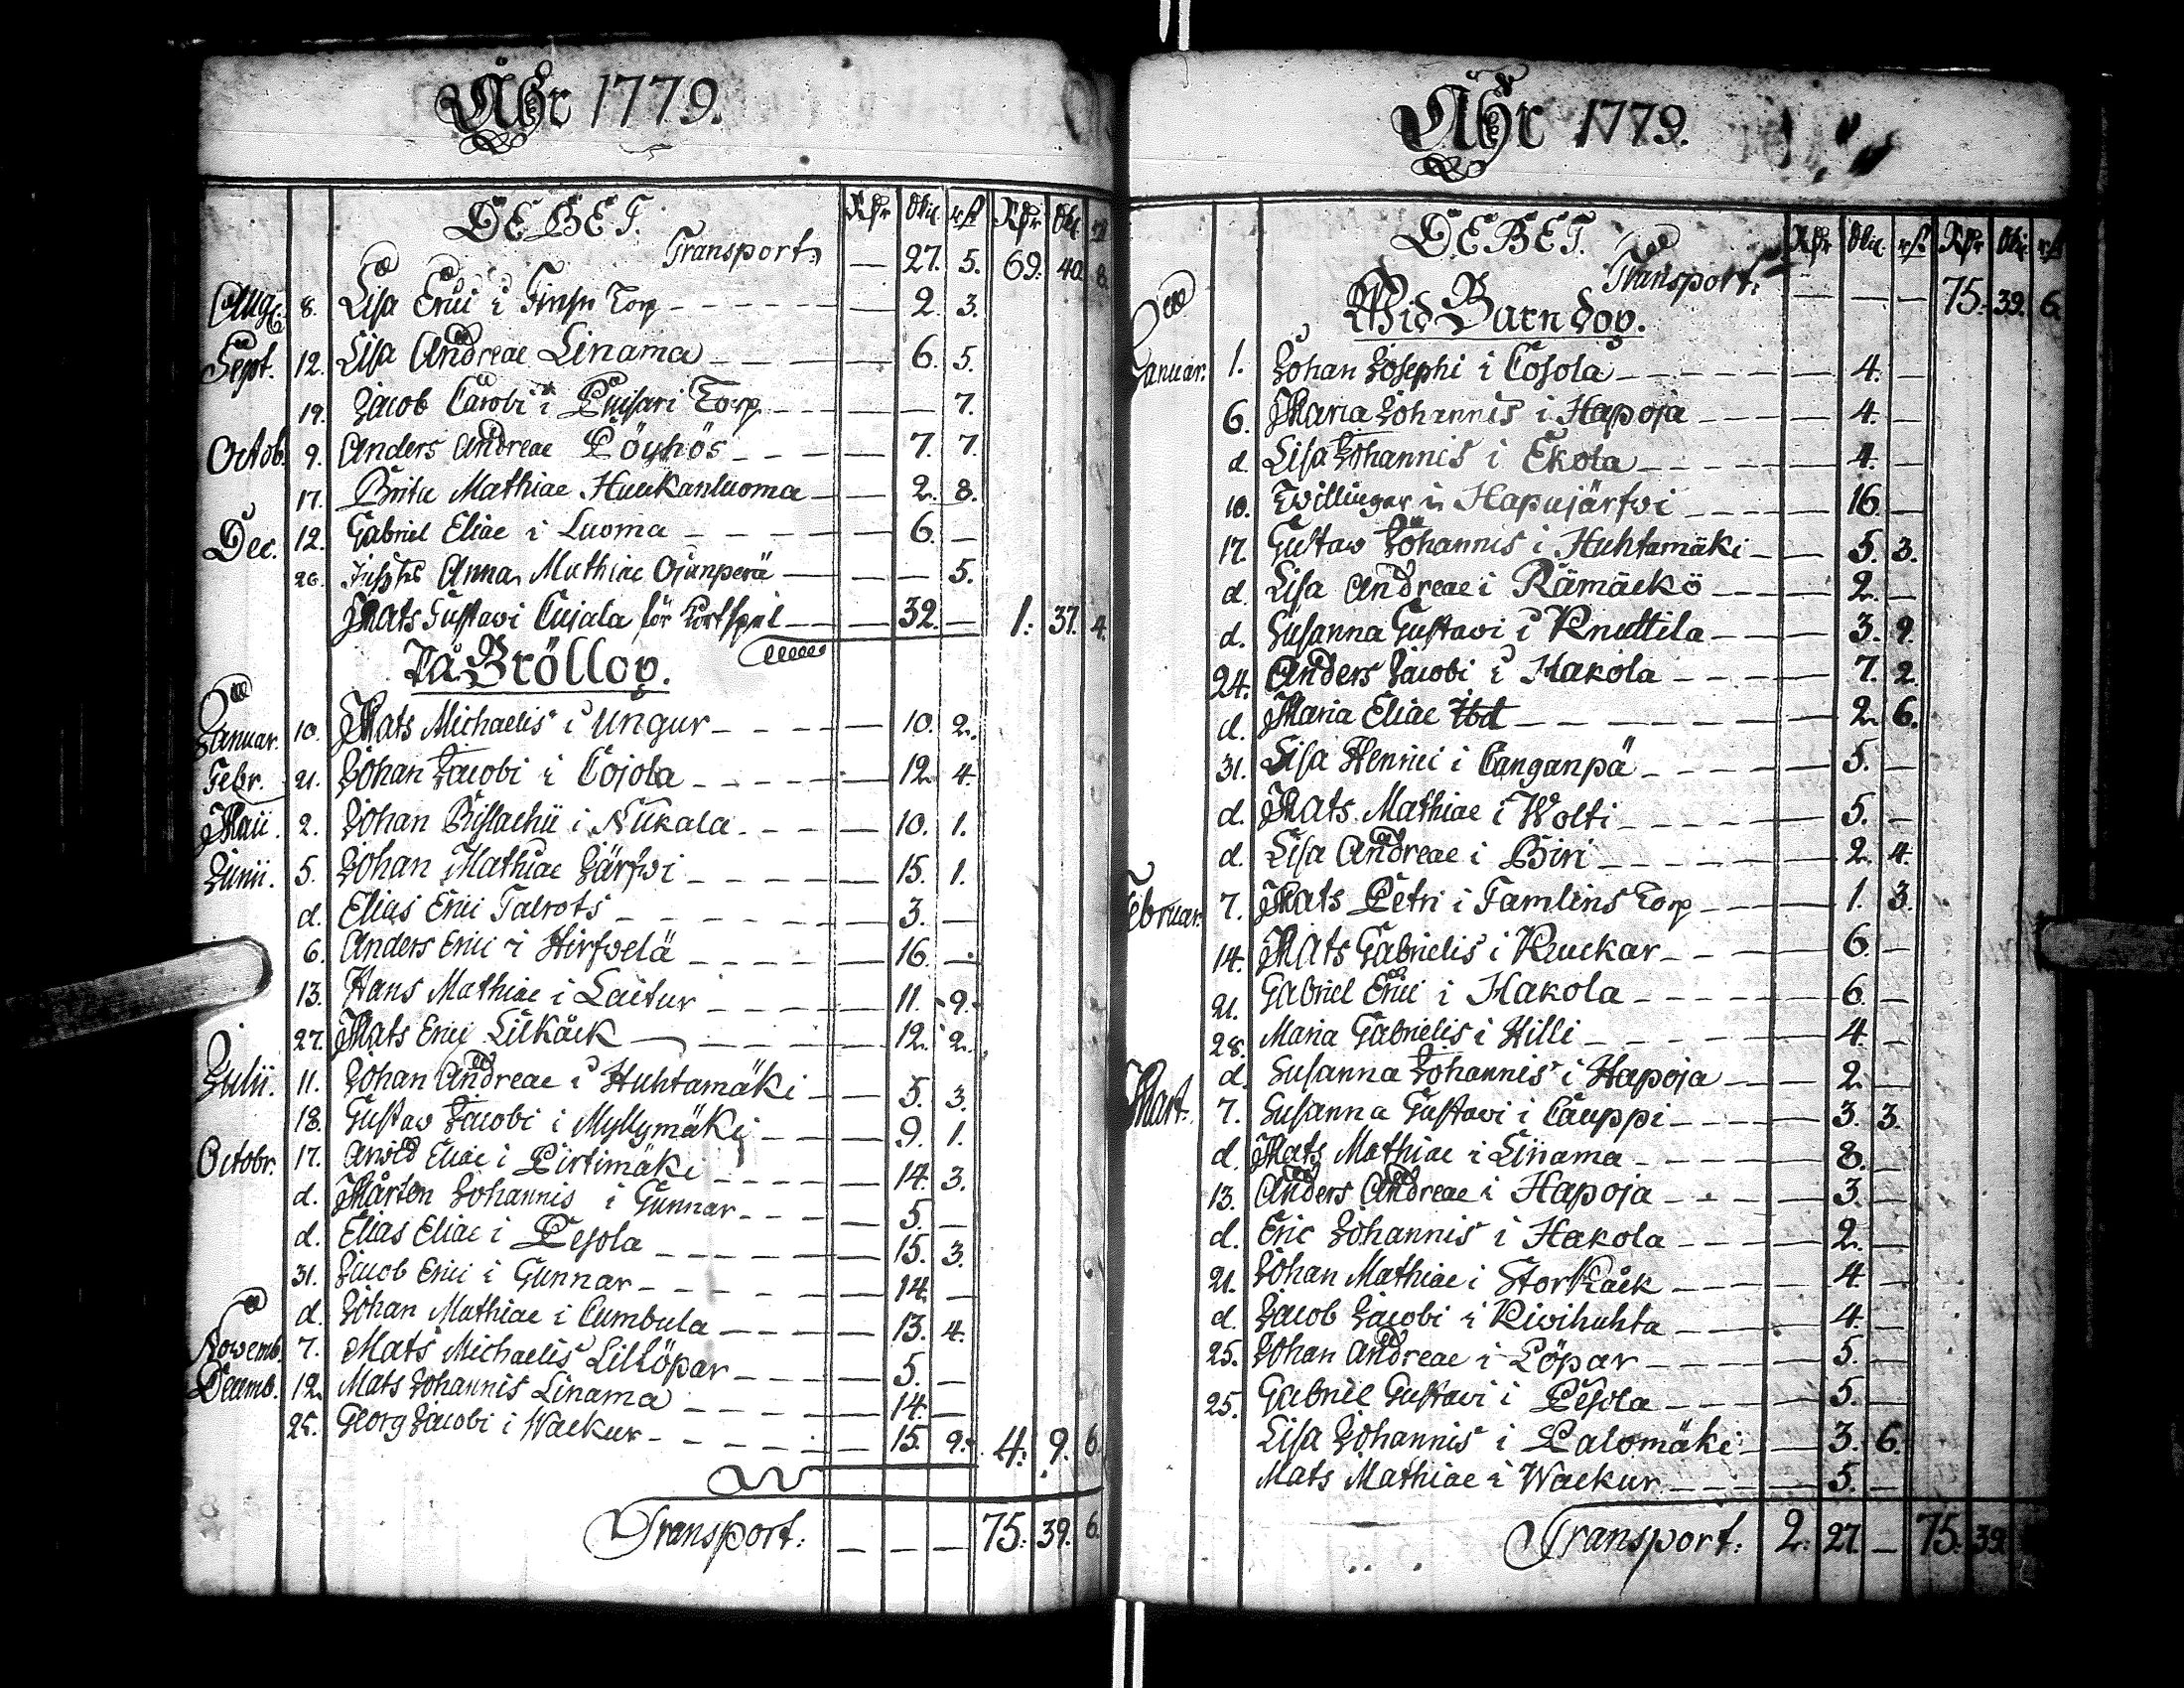 Åhr 1779.
DEBET. Rdr ßk rst Rdr ßk rst
Transport: — 27. 5. 69. 40. 8.
Aug. 8. Lisa Erici i Torp — 2. 3.
Sept. 12. Lisa Andreae Linama — 6. 5.
19. Jacob Carobi i Puisari Torp — — 7.
Octob. 9. Anders Andreae Pöyhös — 7. 7.
17. Brita Mathiae Haukanluoma — 2. 8.
Dec. 12. Gabriel Eliae i Luoma — 6. —
26. Anna Mathiae Ojanperä — — 5.
Mats Gustavi Cujala för Kortspel — 32. — 1. 37. 4.
På Bröllop.
Januar. 10. Mats Michaelis i Ungur — 10. 2.
Febr. 21. Johan Jacobi i Cojola — 12. 4.
Maii. 2. Johan Eustachii i Nikala — 10. 1.
Junii. 5. Johan Mathiae Järfvi — 15. 1.
d. Elias Erici Talrots — 3. —
6. Anders Erici i Hirfvelä — 16. —
13. Hans Mathiae i Laitur — 11. 9.
27. Mats Erici Lilkåck — 12. 2.
Julii. 11. Johan Andreae i Huhtamäki — 5. 3.
18. Gustav Jacobi i Myllymäki — 9. 1.
Octobr. 17. Arvid Eliae i Pirtimäki — 14. 3.
d. Mårten Johannis i Gunnar — 5. —
d. Elias Eliae i Pesola — 15. 3.
31. Jacob Erici i Gunnar — 14. —
d. Johan Mathiae i Cumbula — 13. 4.
Novemb. 7. Mats Michaelis Lillöpar — 5. —
Decemb. 12. Mats Johannis Linama — 14. —
25. Georg Jacobi i Wackur — 15. 9. 4. 9. 6.
Transport: — — — 75. 39. 6.
Åhr 1779.
DEBET. Rdr ßk rst Rdr ßk rst
Transport: — — — 75. 39. 6.
Wid Barndop.
Januar. 1. Johan Josephi i Cojola — 4. —
6. Maria Johannis i Hapoja — 4. —
d. Lisa Johannis i Ekola — 4. —
10. Twillingar i Hapujärfvi — 16. —
17. Gustav Johannis i Huhtamäki — 5. 3.
d. Lisa Andreae i Rämäckö — 2. —
d. Susanna Gustavi i Knuttila — 3. 9.
24. Anders Jacobi i Hakola — 7. 2.
d. Maria Eliae Ibd — 2. 6.
31. Lisa Henrici i Canganpä — 5. —
d. Mats Mathiae i Wolti — 5. —
d. Lisa Andreae i Biri — 2. 4.
Februar. 7. Mats Petri i Tamlins Torp — 1. 3.
14. Mats Gabrielis i Kuckar — 6. —
21. Gabriel Erici i Hakola — 6. —
28. Maria Gabrielis i Hilli — 4. —
d. Susanna Johannis i Hapoja — 2. —
Mart. 7. Susanna Gustavi i Cauppi — 3. 3.
d. Mats Mathiae i Linama — 8. —
13. Anders Andreae i Hapoja — 3. —
d. Eric Johannis i Hakola — 2. —
21. Johan Mathiae i Storkåck — 4. —
d. Jacob Jacobi i Kivihuhta — 4. —
25. Johan Andreae i Löpar — 5. —
25. Gabriel Gustavi i Pesola — 5. —
Lisa Johannis i Palomäki — 3. 6.
Mats Mathiae i Wackur — 5. —
Transport: 2. 27. — 75. 39.